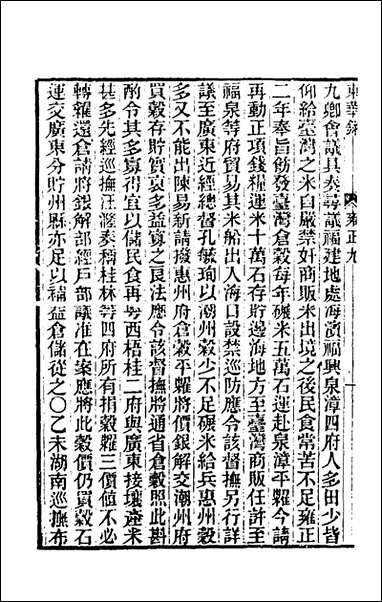 東華錄　雍正九
九卿會議具奏尋議福建地處海濱福興泉漳四府人多田少皆
仰給臺灣之米自嚴禁奸商販米出境之後民食常苦不足雍正
二年奉旨飭發臺灣倉穀每年碾米五萬石運赴泉漳平糶今請
再動正項錢糧運米十萬石存貯邊海地方至臺灣商販任許至
福泉等府貿易其米船出入海口設禁巡防應令該督撫另行詳
議至廣東近經總督孔毓珣以潮州穀少不足碾米給兵惠州穀
多又不能出陳易新請撥惠州府倉穀平糶將價銀解交潮州府
買穀存貯實裒多益寡之良法應令該督撫將通省倉穀照此斟
酌令其多寡得宜以儲民食再粵西梧桂二府與廣東接壤產米
甚多先經巡撫汪漋奏稱桂林等四府所有捐穀糶三價值不必
轉糴還倉請將銀解部經戶部議准在案應將此穀價仍買穀石
運交廣東分貯州縣亦足以補益倉儲從之〇乙未湖南巡撫布